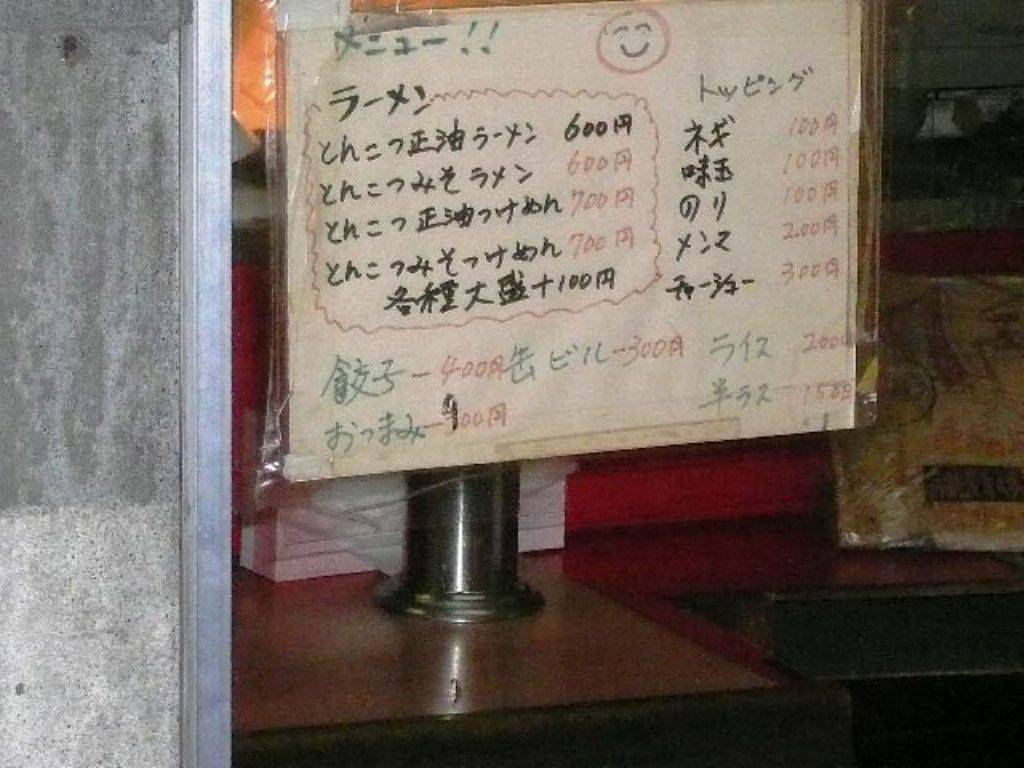 メニュー!!
ラーメン
とんこつ正油ラーメン 600円
とんこつみそラメン 600円
とんこつ正油つけめん 700円
とんこつみそつけめん 700円
各種大盛+100円
トッピング
ネギ 100円
味玉 100円
のり 100円
メンマ 200円
チャーシュー 300円
餃子-400円 缶ビル-300円 ライス 200
おつまみ- 00円 半ラス 150円